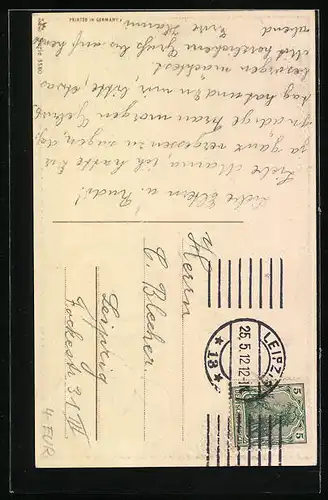 Liebe Eltern u. Rudi!
Liebe Mama, ich hatte Dir
ja ganz vergessen zu sagen, daß
gnädige Frau morgen Geburts
tag hat und Du mir bitte, etwas
besorgen möchtest.
Mit herzlichem Gruß bis auf heute
abend
Eure
PRINTED IN GERMANY
Herrn
C. Blecher
Leipzig
Fockestr. 31 III
LEIPZIG
25.5.12.12-1
* 13 *
5 5
4 EUR